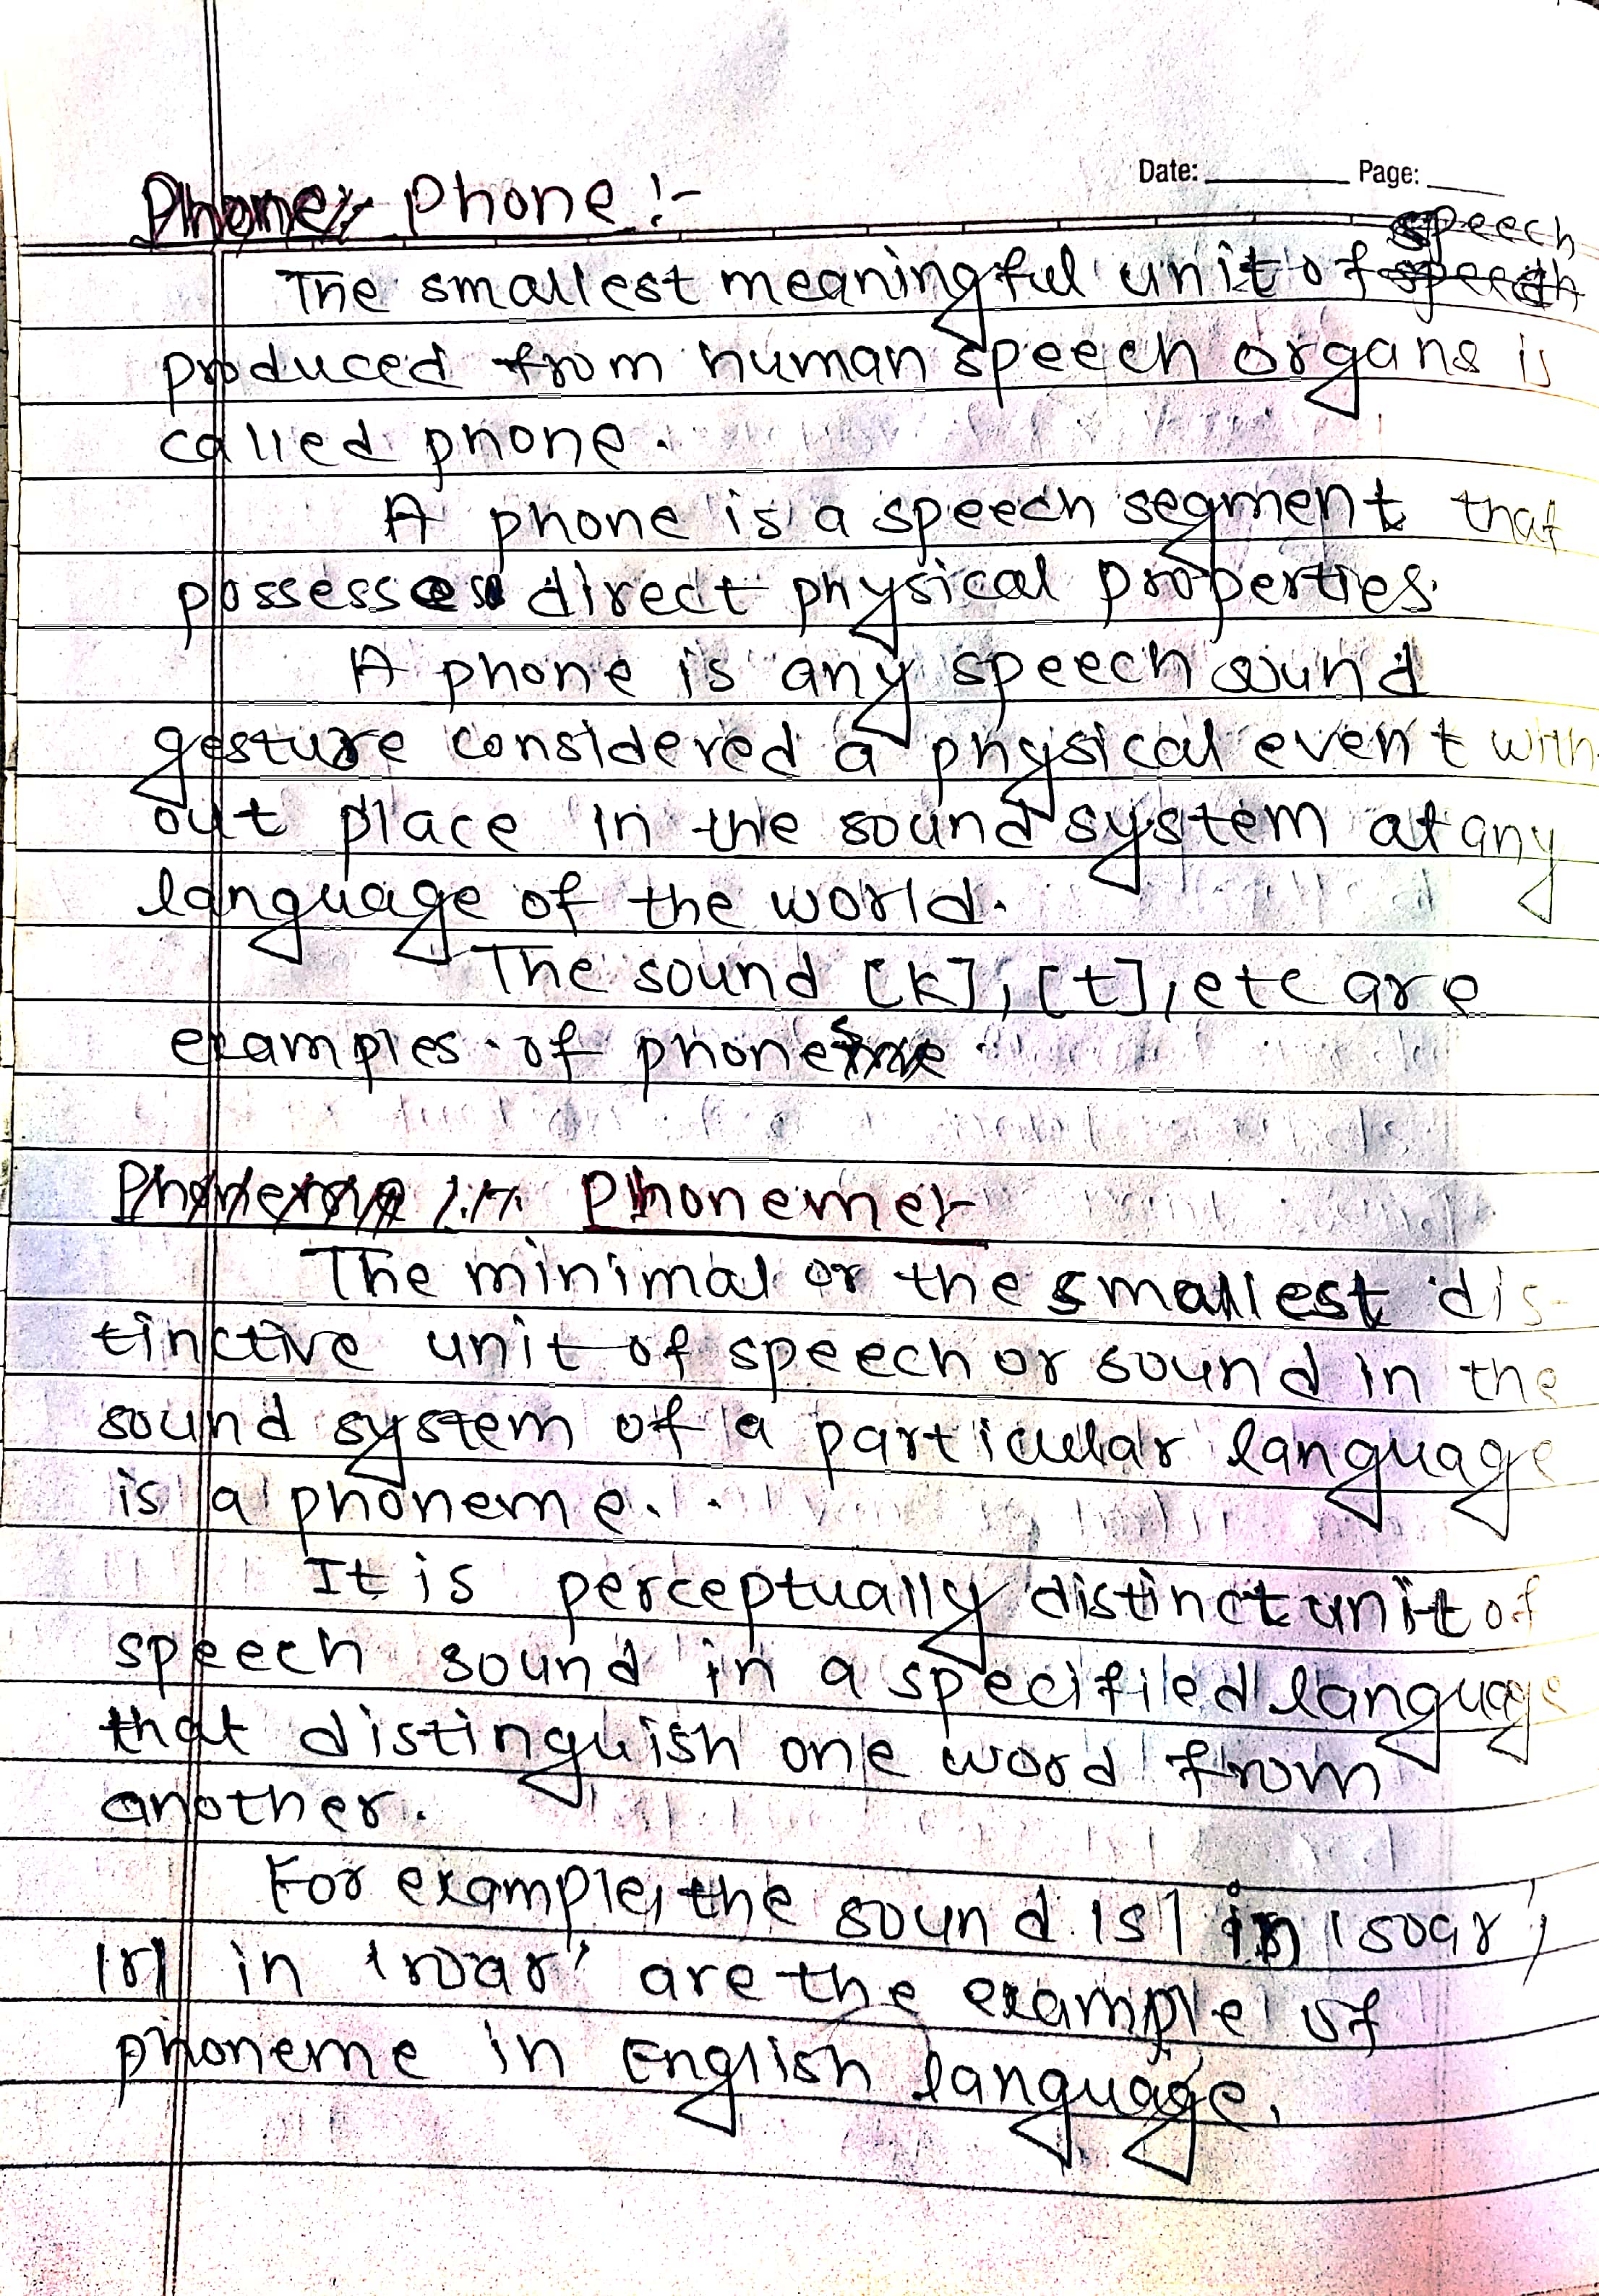 Date: Page:
Phone:- Phone :-
speech
The smallest meaningful unit of speech
produced from human speech organs is
called phone.
A phone is a speech segment that
possesses direct physical properties.
A phone is any speech sound
gesture considered a physical event with-
out place in the sound system at any
language of the world.
The sound [k], [t], etc are
examples of phones
Phoneme :- Phoneme:-
The minimal or the smallest dis-
tinctive unit of speech or sound in the
sound system of a particular language
is a phoneme.
It is perceptually distinct unit of
speech sound in a specified language
that distinguish one word from
another.
For example, the sound /s/ in 'soar',
/r/ in 'roar' are the example of
phoneme in English language.